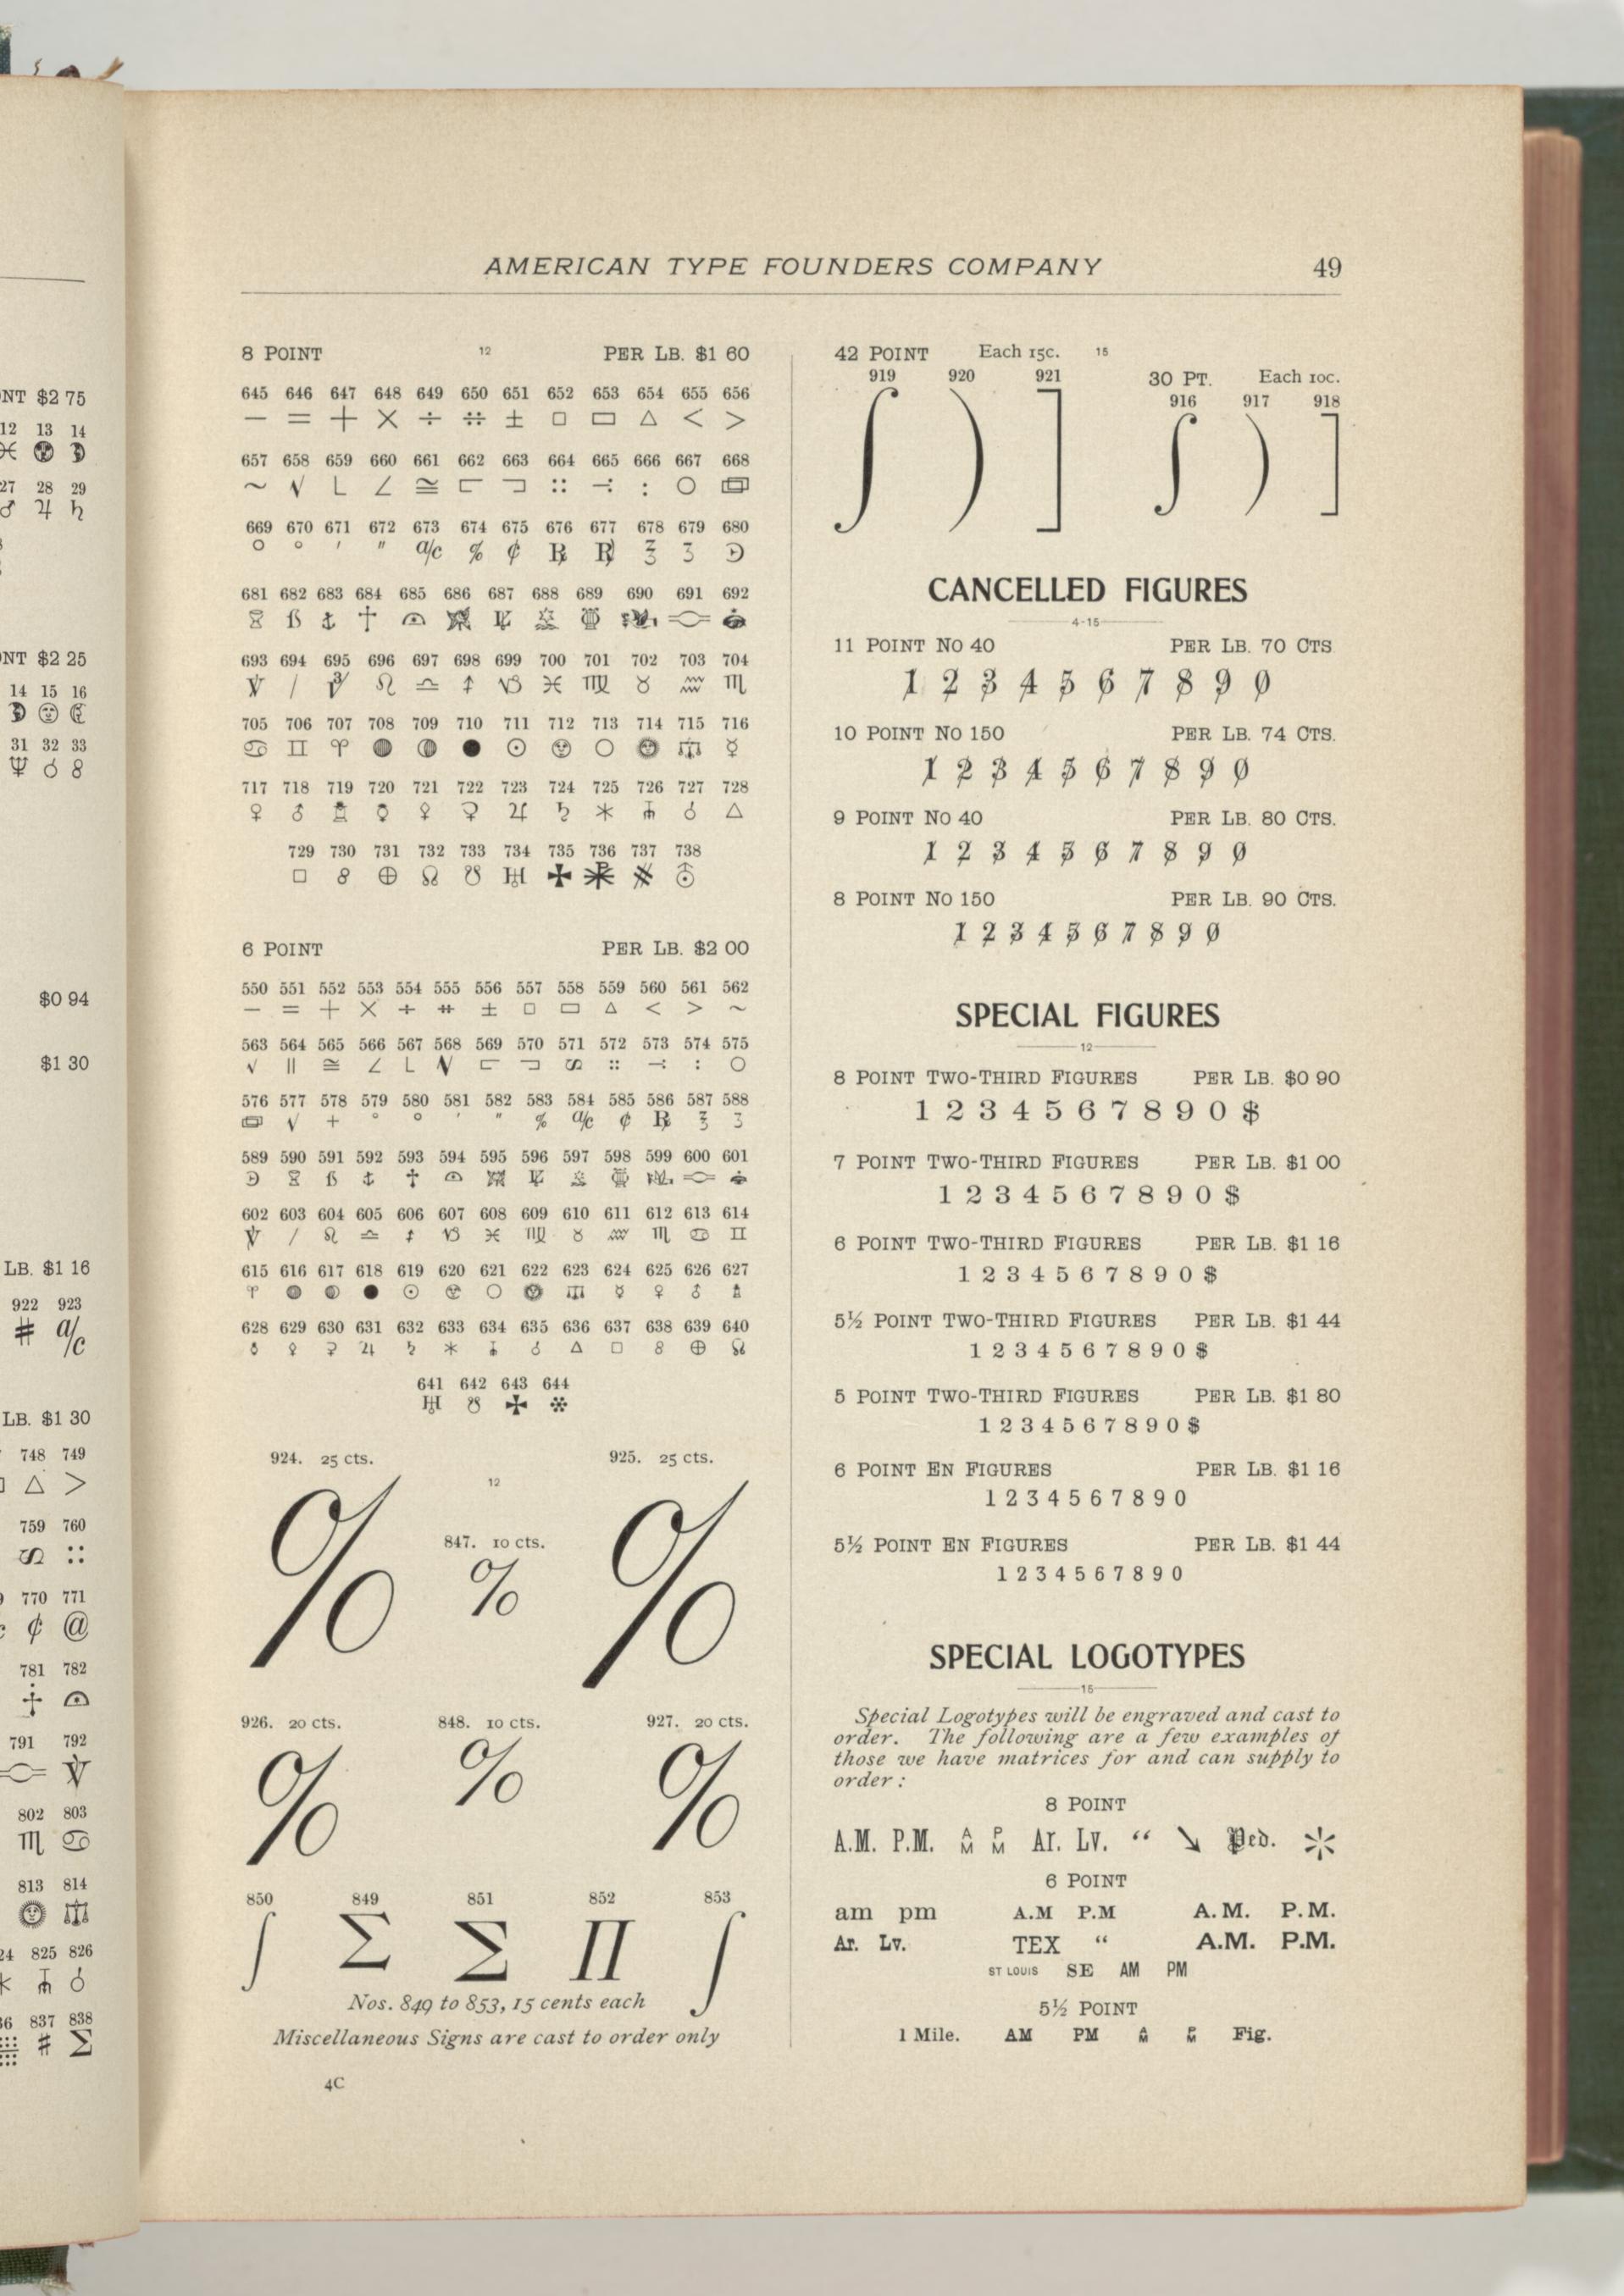 AMERICAN TYPE FOUNDERS COMPANY 49
NT $2 75
12 13 14
27 28 29
♂ ♃ ♄
NT $2 25
14 15 16
31 32 33
♆ ☌ 8
$0 94
$1 30
LB. $1 16
922 923
# a/c
LB. $1 30
748 749
△ >
759 760
∽ ∷
770 771
¢ @
781 782
791 792
802 803
♏ ♋
813 814
24 825 826
36 837 838
# Σ
8 POINT 12 PER LB. $1 60
645 646 647 648 649 650 651 652 653 654 655 656
− = + × ÷ ∺ ± □ ▭ △ < >
657 658 659 660 661 662 663 664 665 666 667 668
669 670 671 672 673 674 675 676 677 678 679 680
681 682 683 684 685 686 687 688 689 690 691 692
693 694 695 696 697 698 699 700 701 702 703 704
705 706 707 708 709 710 711 712 713 714 715 716
717 718 719 720 721 722 723 724 725 726 727 728
729 730 731 732 733 734 735 736 737 738
6 POINT PER LB. $2 00
550 551 552 553 554 555 556 557 558 559 560 561 562
563 564 565 566 567 568 569 570 571 572 573 574 575
576 577 578 579 580 581 582 583 584 585 586 587 588
589 590 591 592 593 594 595 596 597 598 599 600 601
602 603 604 605 606 607 608 609 610 611 612 613 614
615 616 617 618 619 620 621 622 623 624 625 626 627
628 629 630 631 632 633 634 635 636 637 638 639 640
641 642 643 644
924. 25 cts. 925. 25 cts.
12
% %
847. 10 cts.
%
926. 20 cts. 848. 10 cts. 927. 20 cts.
% % %
850 849 851 852 853
∫ Σ Σ Π ∫
Nos. 849 to 853, 15 cents each
Miscellaneous Signs are cast to order only
4C
42 POINT Each 15c. 15
919 920 921
∫ ) ]
30 PT. Each 10c.
916 917 918
∫ ) ]
CANCELLED FIGURES
4-15
11 POINT NO 40 PER LB. 70 CTS
1 2 3 4 5 6 7 8 9 0
10 POINT NO 150 PER LB. 74 CTS.
1 2 3 4 5 6 7 8 9 0
9 POINT NO 40 PER LB. 80 CTS.
1 2 3 4 5 6 7 8 9 0
8 POINT NO 150 PER LB. 90 CTS.
1 2 3 4 5 6 7 8 9 0
SPECIAL FIGURES
12
8 POINT TWO-THIRD FIGURES PER LB. $0 90
1 2 3 4 5 6 7 8 9 0 $
7 POINT TWO-THIRD FIGURES PER LB. $1 00
1 2 3 4 5 6 7 8 9 0 $
6 POINT TWO-THIRD FIGURES PER LB. $1 16
1 2 3 4 5 6 7 8 9 0 $
5½ POINT TWO-THIRD FIGURES PER LB. $1 44
1 2 3 4 5 6 7 8 9 0 $
5 POINT TWO-THIRD FIGURES PER LB. $1 80
1 2 3 4 5 6 7 8 9 0 $
6 POINT EN FIGURES PER LB. $1 16
1 2 3 4 5 6 7 8 9 0
5½ POINT EN FIGURES PER LB. $1 44
1 2 3 4 5 6 7 8 9 0
SPECIAL LOGOTYPES
15
Special Logotypes will be engraved and cast to
order. The following are a few examples of
those we have matrices for and can supply to
order :
8 POINT
A.M. P.M. AM PM Ar. Lv. “ ↘ Ped. *
6 POINT
am pm A.M P.M A.M. P.M.
Ar. Lv. TEX “ A.M. P.M.
ST LOUIS SE AM PM
5½ POINT
1 Mile. AM PM AM PM Fig.